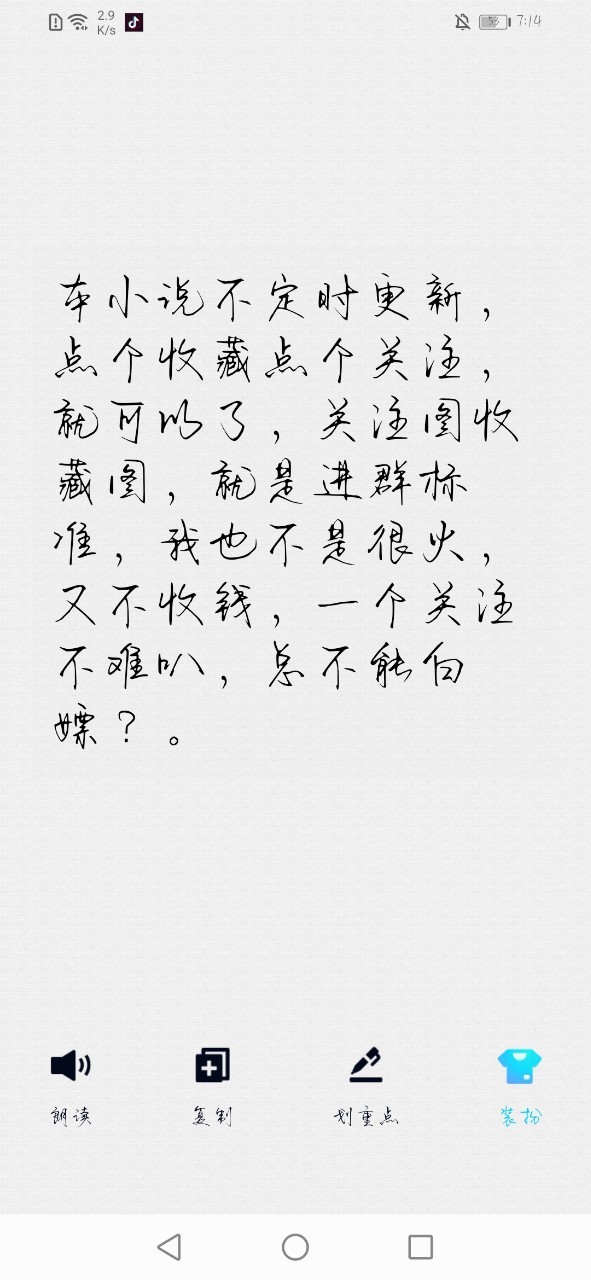 2.9
K/s
53
7:14
本小说不定时更新，
点个收藏点个关注，
就可以了，关注图收
藏图，就是进群标
准，我也不是很火，
又不收钱，一个关注
不难叭，总不能白
嫖？。
朗读
复制
划重点
装扮